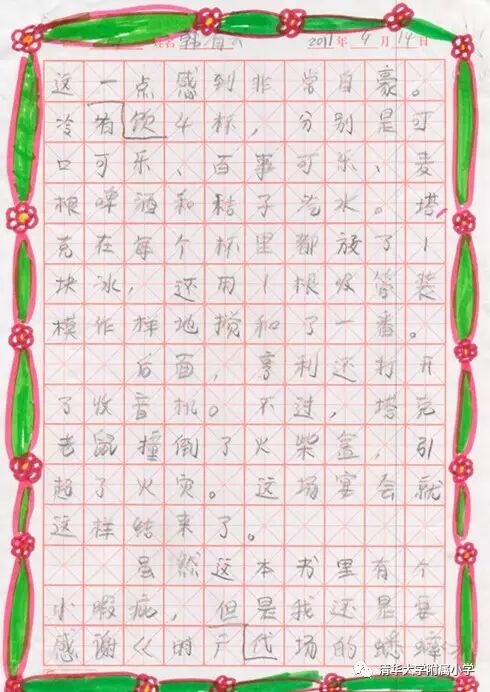 姓名 韩 2011年 4月14日
这一点感到非常自豪。
冷有饮4杯，分别是可
口可乐、百事可乐、麦
根啤酒和桔子汽水。塔
克在每个杯里都放了1
块冰，还用1根吸管装
模作样地搅和了一番。
后面，亨利还打开
了收音机。不过，塔克
老鼠撞倒了火柴盒，引
起了火灾。这场宴会就
这样结束了。
虽然这本书里有个
小暇疵，但是我还是要
感谢《时广代场的蟋蟀》
清华大学附属小学